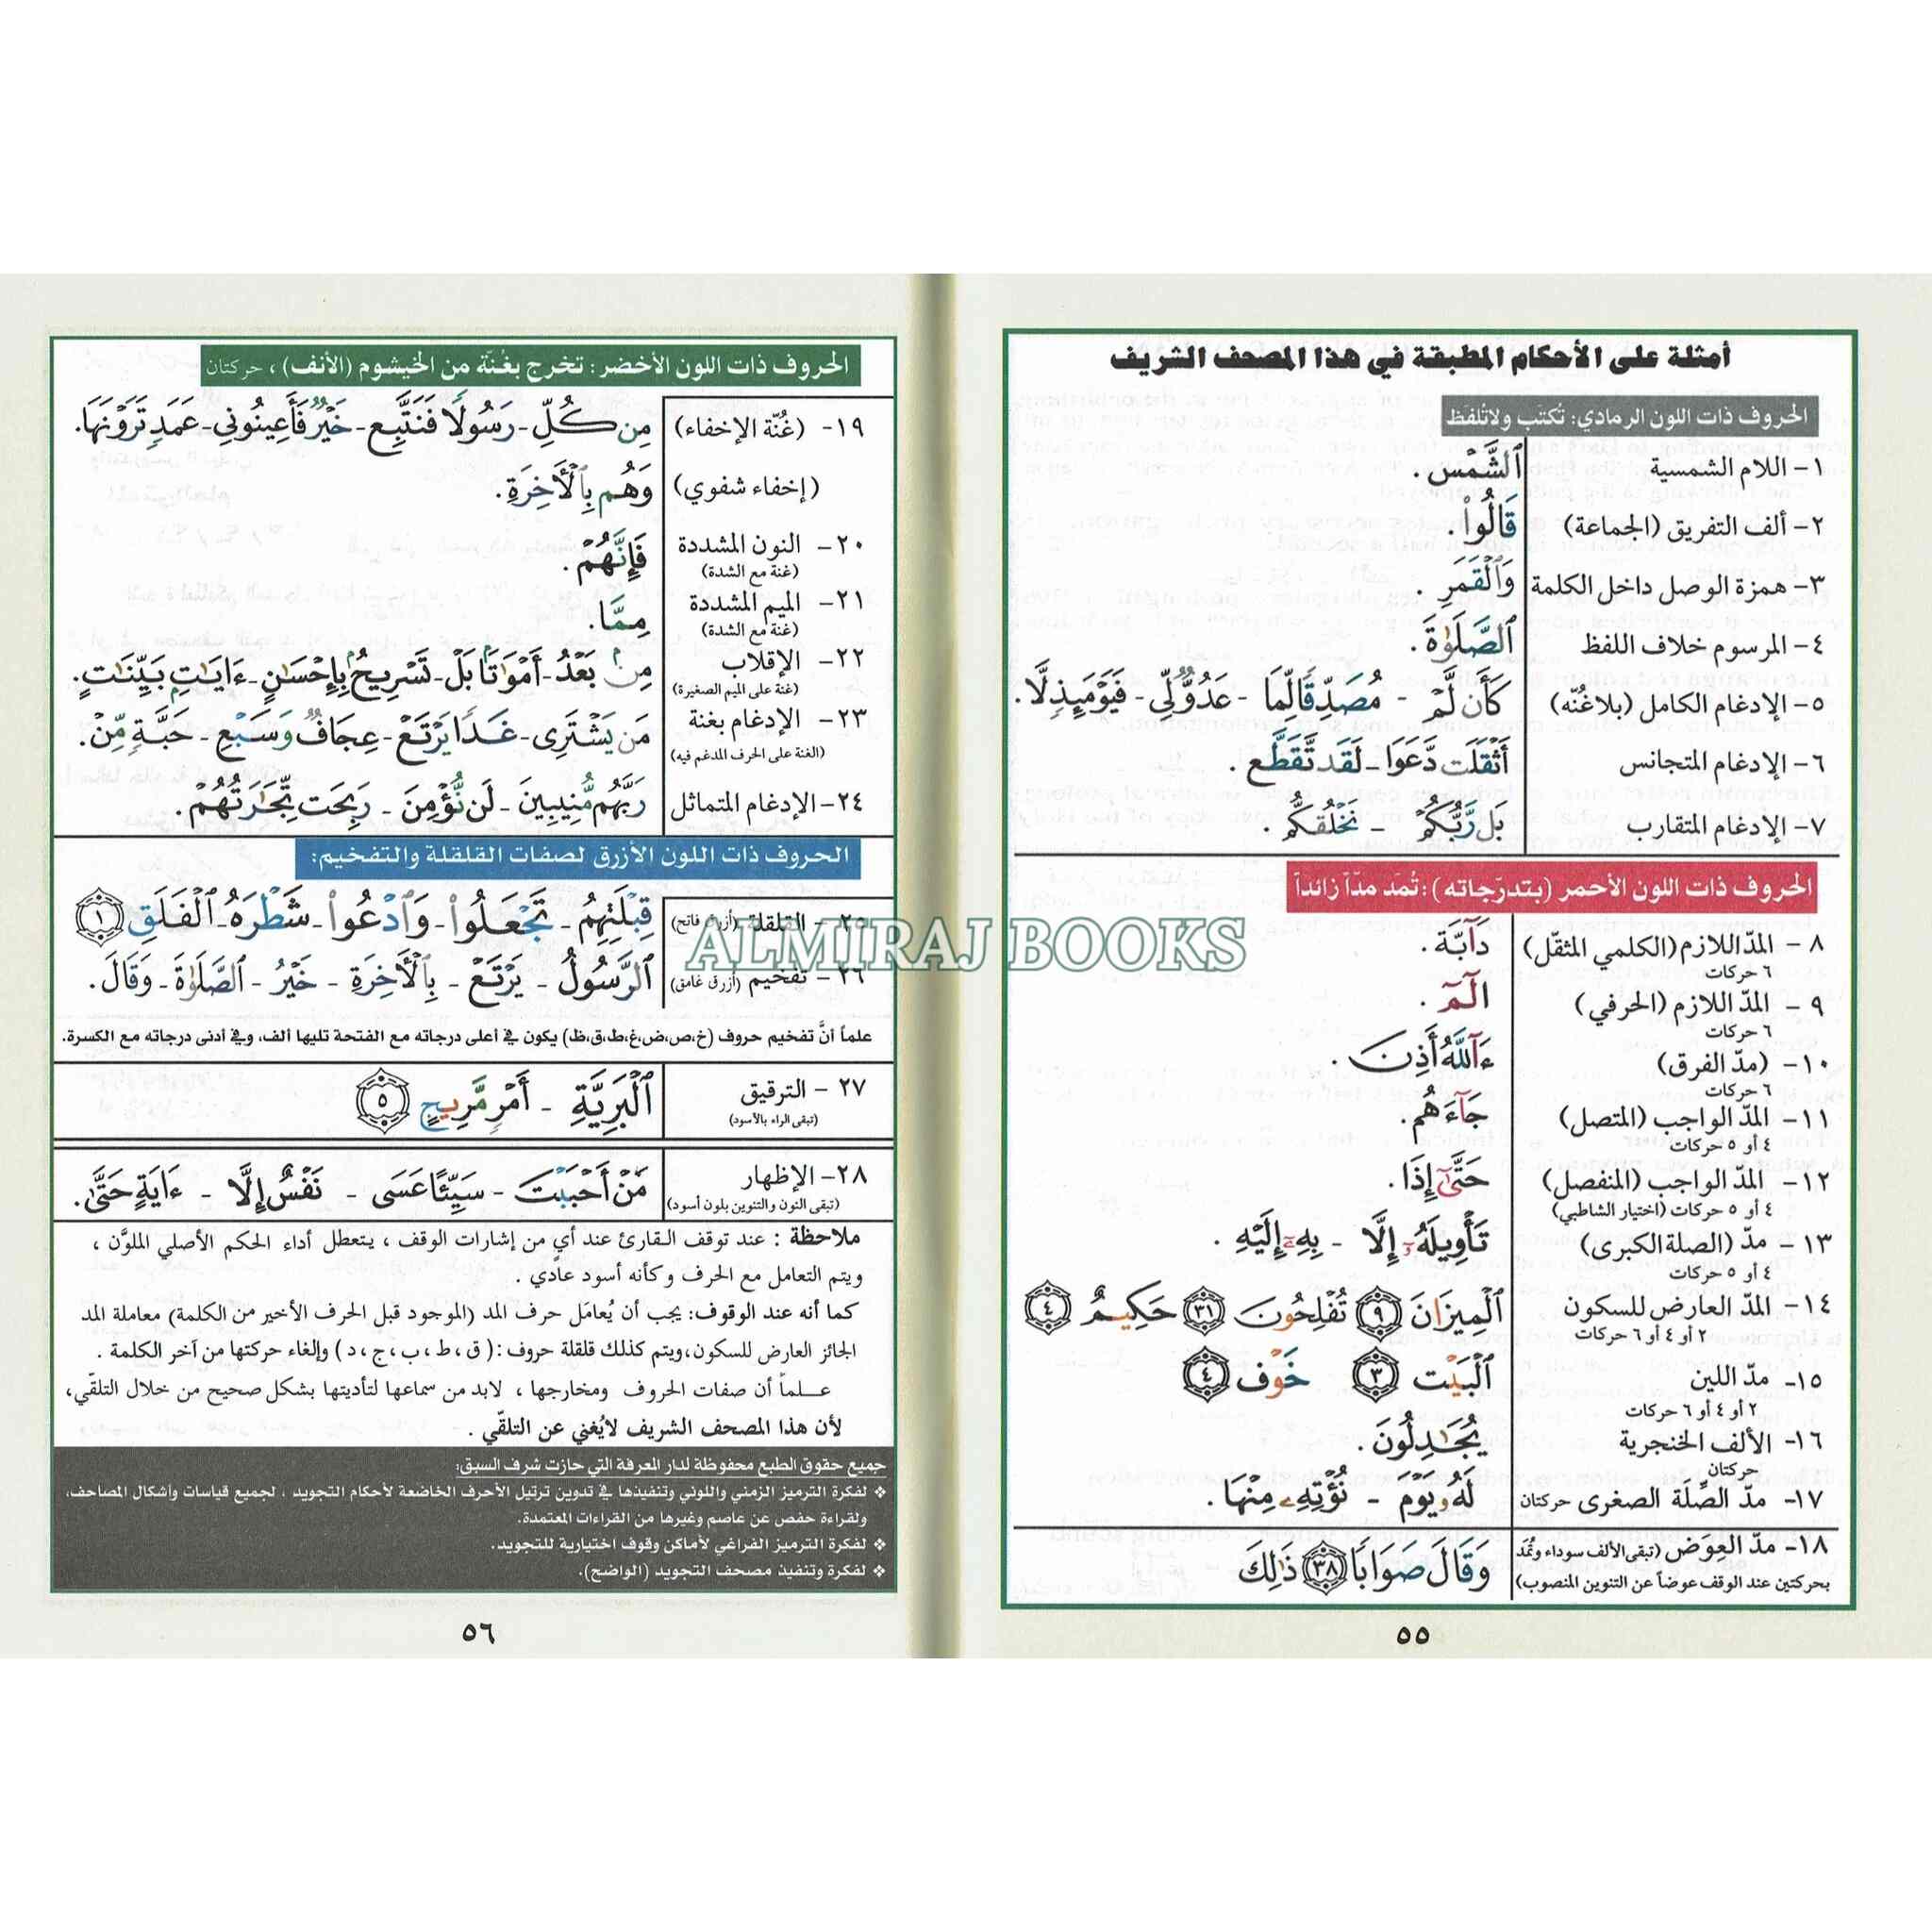 أمثلة على الأحكام المطبقة في هذا المصحف الشريف
الحروف ذات اللون الرمادي: تُكتَب ولا تُلفَظ
١- اللام الشمسية ٱلشَّمْسِ .
٢- ألف التفريق (الجماعة) قَالُوا۟ .
٣- همزة الوصل داخل الكلمة وَٱلْقَمَرِ .
٤- المرسوم خلاف اللفظ ٱلصَّلَوٰةَ .
٥- الإدغام الكامل (بلاغُنّه) كَأَن لَّمْ - مُصَدِّقًا لِّمَا - عَدُوٌّ لِّي - فَيَوْمَئِذٍ لَّا .
٦- الإدغام المتجانس أَثْقَلَت دَّعَوَا - لَقَد تَّقَطَّع .
٧- الإدغام المتقارب بَل رَّبُّكُمْ - نَخْلُقكُّم .
الحروف ذات اللون الأحمر (بتدرّجاته): تُمَد مدّاً زائداً
٨ - المدّ اللازم (الكلمي المثقّل) دَآبَّة .
٦ حركات
٩ - المدّ اللازم (الحرفي) الٓمٓ .
٦ حركات
١٠- (مدّ الفرق) ءَآللَّهُ أَذِنَ .
٦ حركات
١١- المدّ الواجب (المتصل) جَآءَهُم .
٤ أو ٥ حركات
١٢- المدّ الواجب (المنفصل) حَتَّىٰٓ إِذَا .
٤ أو ٥ حركات (اختيار الشاطبي)
١٣ - مدّ (الصلة الكبرى) تَأْوِيلَهُۥٓ إِلَّا - بِهِۦٓ إِلَيْهِ .
٤ أو ٥ حركات
١٤- المدّ العارض للسكون ٱلْمِيزَانَ ٩ تُفْلِحُونَ ٣١ حَكِيمٌ ٤
٢ أو ٤ أو ٦ حركات
١٥- مدّ اللين ٱلْبَيْتِ ٣ خَوْفٍ ٤
٢ أو ٤ أو ٦ حركات
١٦- الألف الخنجرية يُجَٰدِلُونَ .
حركتان
١٧- مدّ الصِّلَة الصغرى حركتان لَهُۥ يَوْم - نُؤْتِهِۦ مِنْهَا .
١٨- مدّ العِوَض (تبقى الألف سوداء وتُمَدّ وَقَالَ صَوَابًا ٣٨ ذَٰلِكَ
بحركتين عند الوقف عوضاً عن التنوين المنصوب)
٥٥
الحروف ذات اللون الأخضر: تخرج بغُنّة من الخيشوم (الأنف) ، حركتان
١٩- (غُنّة الإخفاء) مِن كُلِّ - رَسُولًا فَنَتَّبِع - خَيْرٌ فَأَعِينُونِي - عَمَدٍ تَرَوْنَهَا.
(إخفاء شفوي) وَهُم بِٱلْأَخِرَةِ .
٢٠- النون المشددة فَإِنَّهُمْ .
(غنة مع الشدة)
٢١- الميم المشددة مِمَّا .
(غنة مع الشدة)
٢٢- الإقلاب مِنۢ بَعْدُ - أَمْوَٰتًا بَلْ - تَسْرِيحٌ بِإِحْسَٰنٍ - ءَايَٰتٍ بَيِّنَٰتٍ.
(غنة على الميم الصغيرة)
٢٣- الإدغام بغنة مَن يَشْتَرِى - غَدًا يَرْتَعْ - عِجَافٌ وَسَبْعِ - حَبَّةٍ مِّنْ.
(الغنة على الحرف المدغم فيه)
٢٤- الإدغام المتماثل رَبَّهُم مُّنِيبِينَ - لَن نُّؤْمِنَ - رَبِحَت تِّجَٰرَتُهُمْ.
الحروف ذات اللون الأزرق لصفات القلقلة والتفخيم:
٢٥- القلقلة (أزرق فاتح) قِبْلَتِهِمُ - تَجْعَلُوا۟ - وَٱدْعُوا۟ - شَطْرَهُ - ٱلْفَلَقِ ١
ALMIRAJ BOOKS
٢٦- تفخيم (أزرق غامق) ٱلرَّسُولُ - يَرْتَعْ - بِٱلْأَخِرَةِ - خَيْرُ - ٱلصَّلَوٰةَ - وَقَالَ.
علماً أنَّ تفخيم حروف (خ،ص،ض،غ،ط،ق،ظ) يكون في أعلى درجاته مع الفتحة تليها ألف، وفي أدنى درجاته مع الكسرة.
٢٧ - الترقيق ٱلْبَرِيَّةِ - أَمْرٍ مَّرِيجٍ ٥
(تبقى الراء بالأسود)
٢٨- الإظهار مَنْ أَحْبَبْتَ - سَيِّئًا عَسَى - نَفْسٌ إِلَّا - ءَايَةٍ حَتَّىٰ.
(تبقى النون والتنوين بلون أسود)
ملاحظة : عند توقف القارئ عند أي من إشارات الوقف ، يتعطل أداء الحكم الأصلي الملوَّن ،
ويتم التعامل مع الحرف وكأنه أسود عادي .
كما أنه عند الوقوف: يجب أن يُعامَل حرف المد (الموجود قبل الحرف الأخير من الكلمة) معاملة المد
الجائز العارض للسكون،ويتم كذلك قلقلة حروف: (ق،ط،ب،ج،د) وإلغاء حركتها من آخر الكلمة .
علماً أن صفات الحروف ومخارجها ، لابد من سماعها لتأديتها بشكل صحيح من خلال التلقّي،
لأن هذا المصحف الشريف لايُغني عن التلقّي .
جميع حقوق الطبع محفوظة لدار المعرفة التي حازت شرف السبق:
❖ لفكرة الترميز الزمني واللوني وتنفيذها في تدوين ترتيل الأحرف الخاضعة لأحكام التجويد ، لجميع قياسات وأشكال المصاحف،
ولقراءة حفص عن عاصم وغيرها من القراءات المعتمدة.
❖ لفكرة الترميز الفراغي لأماكن وقوف اختيارية للتجويد.
❖ لفكرة وتنفيذ مصحف التجويد (الواضح).
٥٦